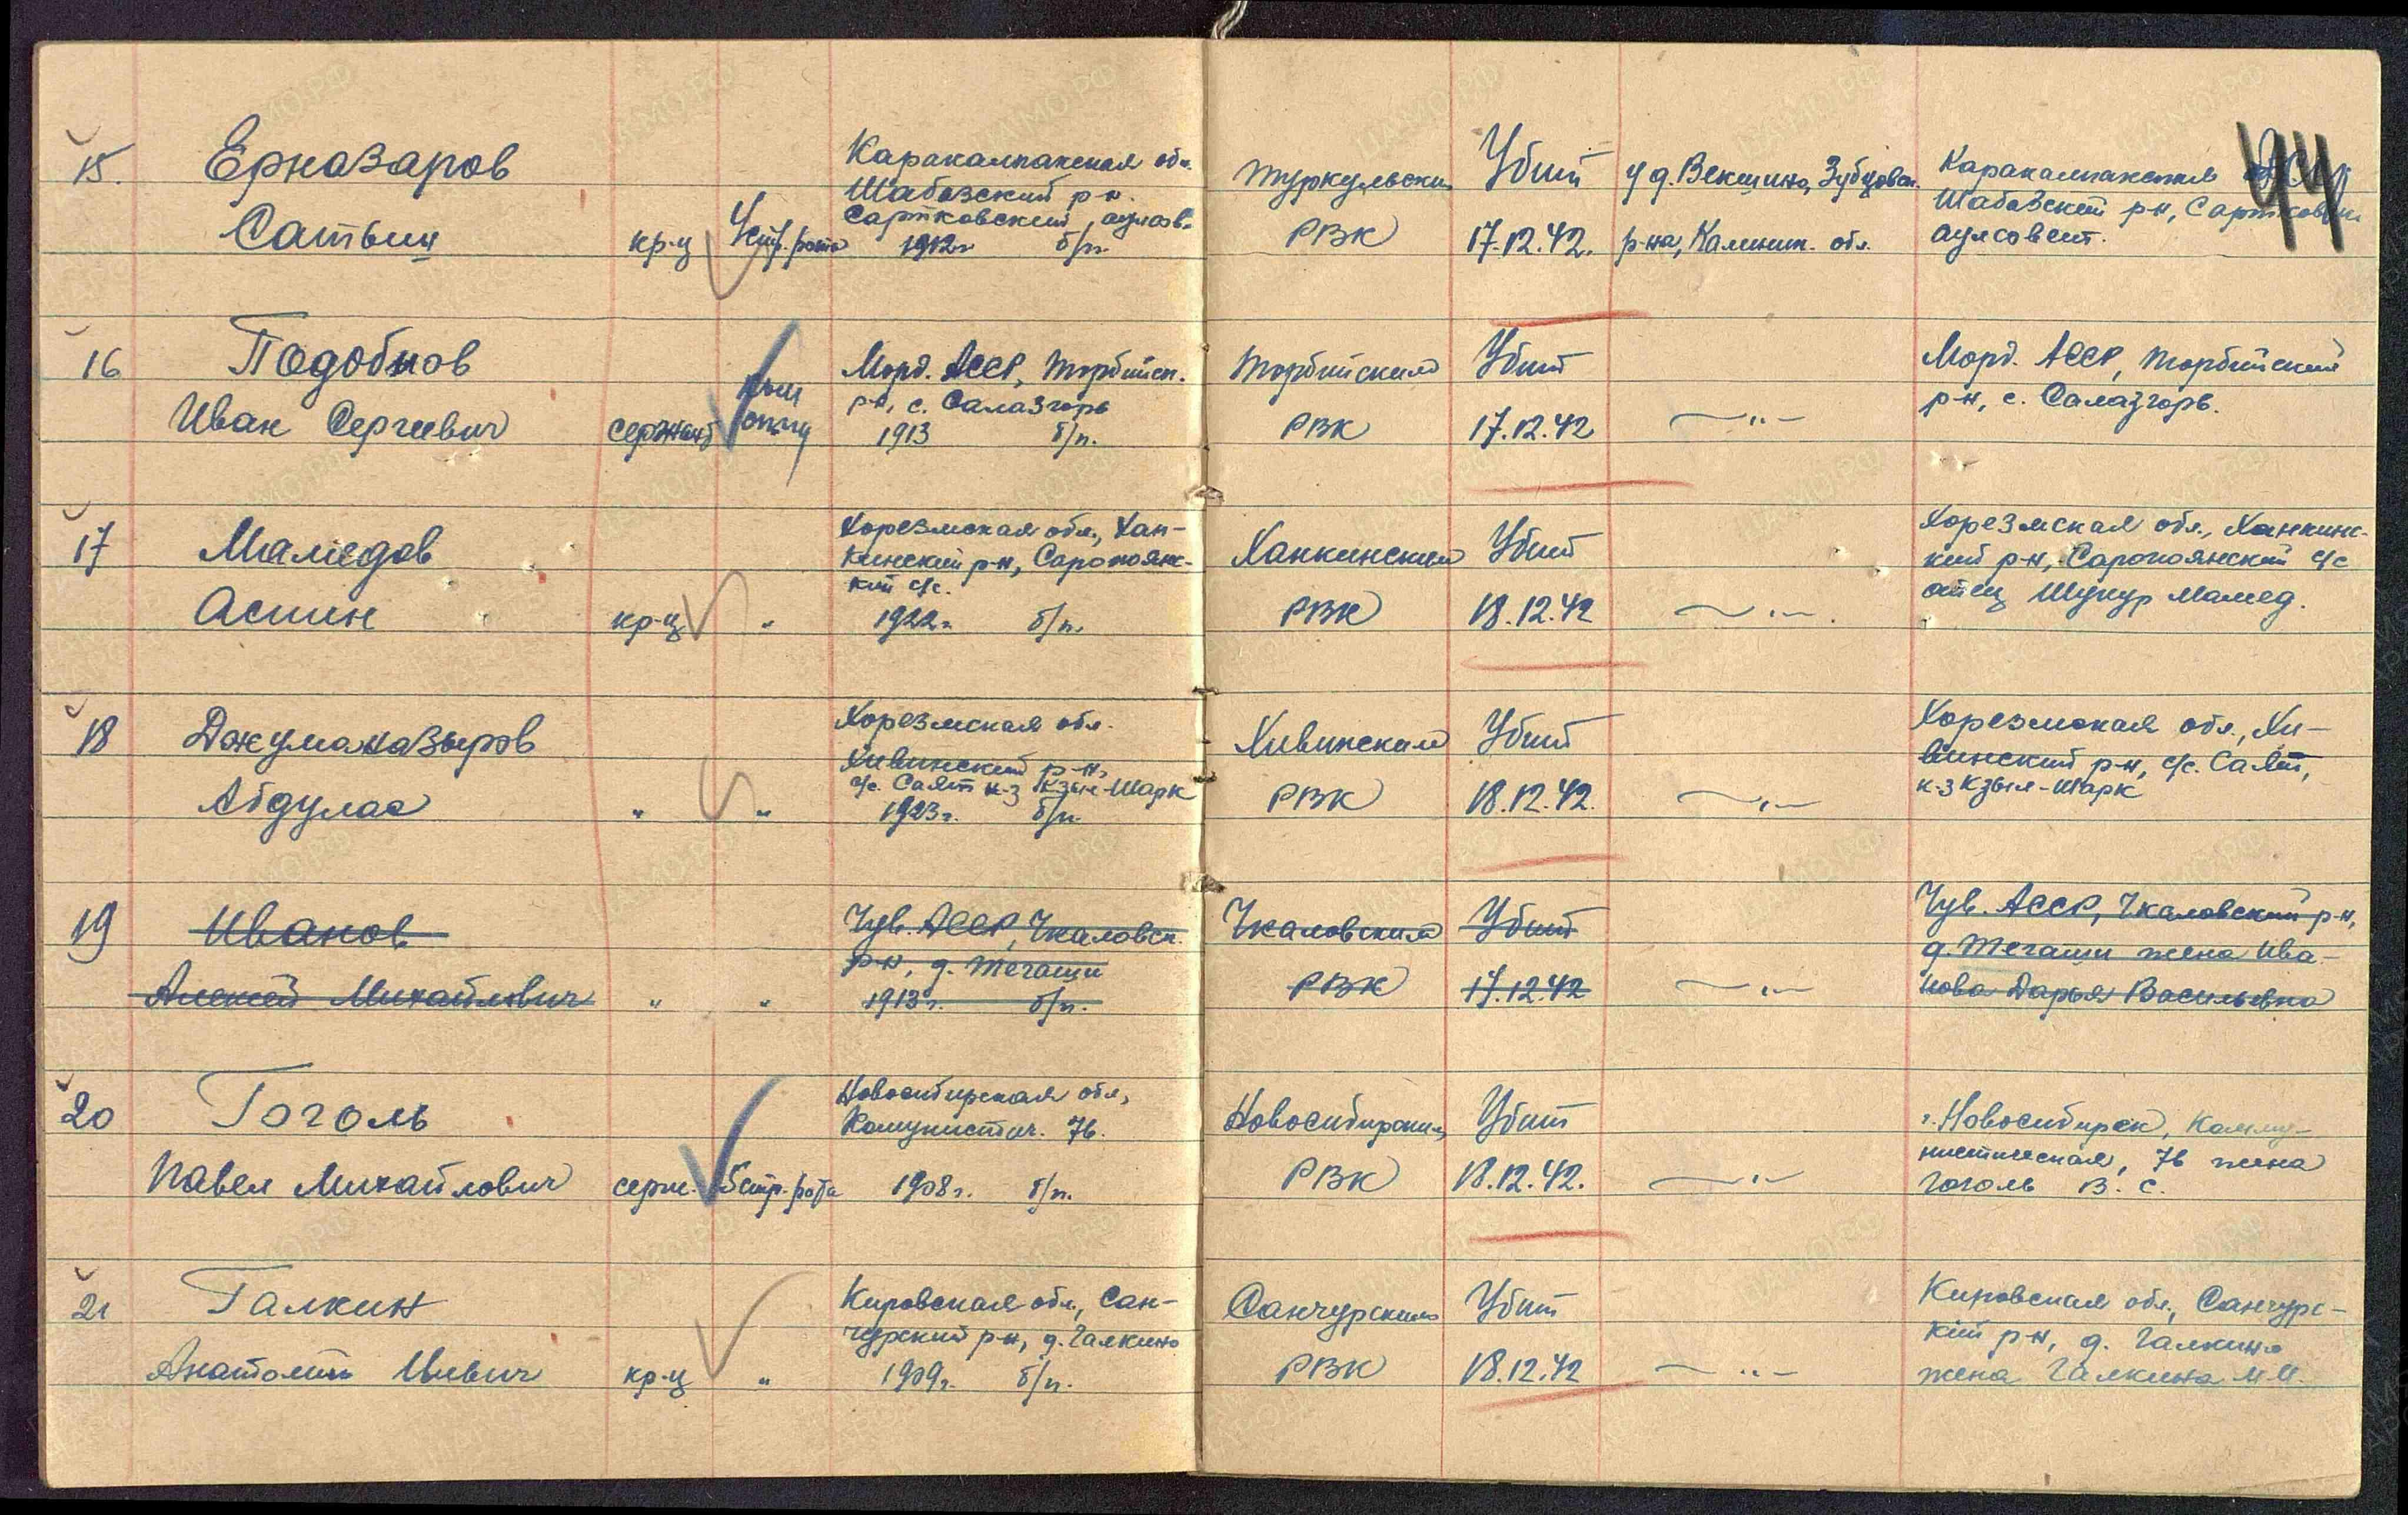 44
15. Ерназаров
Сатым
кр-ц
4 стр. рота
Каракалпакская обл.
Шабазский р-н.
Сартковский аулсов.
1912г. б/п.
Туркульским
РВК
Убит
17.12.42.
у д. Векшино, Зубцовск.
р-на, Калинин. обл.
Каракалпакская
Шабазский р-н, Сартковск.
аулсовет.
16 Подобнов
Иван Сергеевич
сержант
Морд. АССР, Торбийск.
р-н, с. Салазгорь
1913 б/п.
Торбийским
РВК
Убит
17.12.42
— " —
Морд. АССР, Торбийский
р-н, с. Салазгорь.
17 Мамедов
Асмин
кр-ц
"
Хорезмская обл., Хан-
кинский р-н, Сарапоянс-
кий с/с.
1922г. б/п.
Ханкинским
РВК
Убит
18.12.42
— " —
Хорезмская обл., Ханкинс-
кий р-н, Сарапоянский с/с
отец Шукур Мамед.
18 Джуманазыров
Абдулас
" "
Хорезмская обл.
Хивинский р-н,
с/с. Саят к-з Кзыл-Шарк
1923г. б/п.
Хивинским
РВК
Убит
18.12.42.
— " —
Хорезмская обл., Хи-
винский р-н, с/с. Саят,
к-з Кзыл-Шарк
19 Иванов
Алексей Михайлович
" "
Чув. АССР, Чкаловск.
р-н, д. Тегаши
1913г. б/п.
Чкаловским
РВК
Убит
17.12.42
— " —
Чув. АССР, Чкаловский р-н,
д. Тегаши жена Ива-
нова Дарья Васильевна
20 Гоголь
Павел Михайлович
серж.
5 стр. рота
Новосибирская обл,
Комунистич. 76.
1908г. б/п.
Новосибирским
РВК
Убит
18.12.42.
— " —
г. Новосибирск, Комму-
нистическая, 76 жена
Гоголь В. С.
21 Галкин
Анатолий Ильич
кр-ц
"
Кировская обл., Сан-
чурский р-н, д. Галкино
1909г. б/п.
Санчурским
РВК
Убит
18.12.42
— " —
Кировская обл., Санчурс-
кий р-н, д. Галкино
жена Галкина М.И.